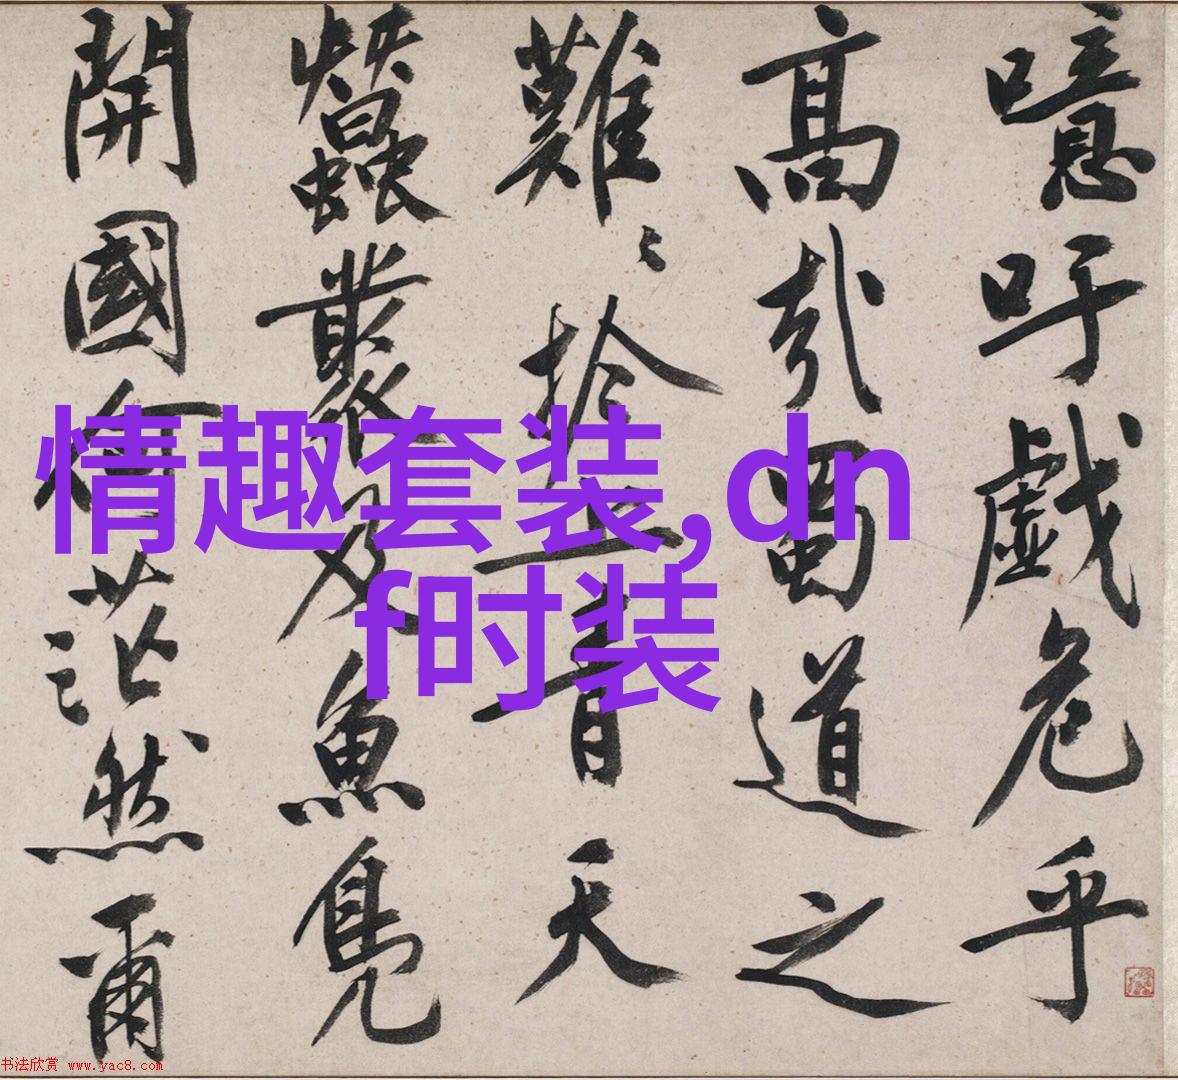 噫吁戲危乎
高哉蜀道之
難〻於上青天
蠶叢及魚鳧
開國何茫然爾
情趣套装,dn
f时装
书法欣赏 www.yac8.com